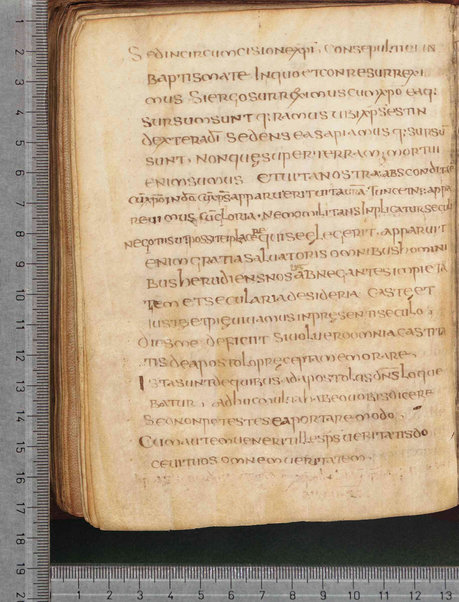 Sed in circumcisione xpi consepulti illi in
baptismate In quo et conresurrexi
mus Si ergo surreximus cum xpo ea q:
sursum sunt q:ramus ubi xps est in
dextera di sedens ea sapiamus q: sursū
sunt. non quę super terram, mortui
enim sumus et uita nostra abscondita
cū xpo in do cū xps apparuerit uita nra Tunc
rebimus gloria. Nemo militans Inplicatur secul
negotiis ut possit ei placere qui se elegerit. apparuit
enim gratia saluatoris omnibus homini
bus herudiens nos ut abnegantes impieta
tem et secularia desideria caste et
iuste et pię uiuamus in pręsenti seculo,
Dies me deficit si uoluero omnia casti
tis de apostolo pręcepta memorare,
Ista sunt de quibus ad apostolos dns loque
batur, adhuc multa habeo uobis dicere
Sed non potestis ea portare modo,
Cum autem uenerit ille sps ueritatis do
cebit uos omnem ueritatem,